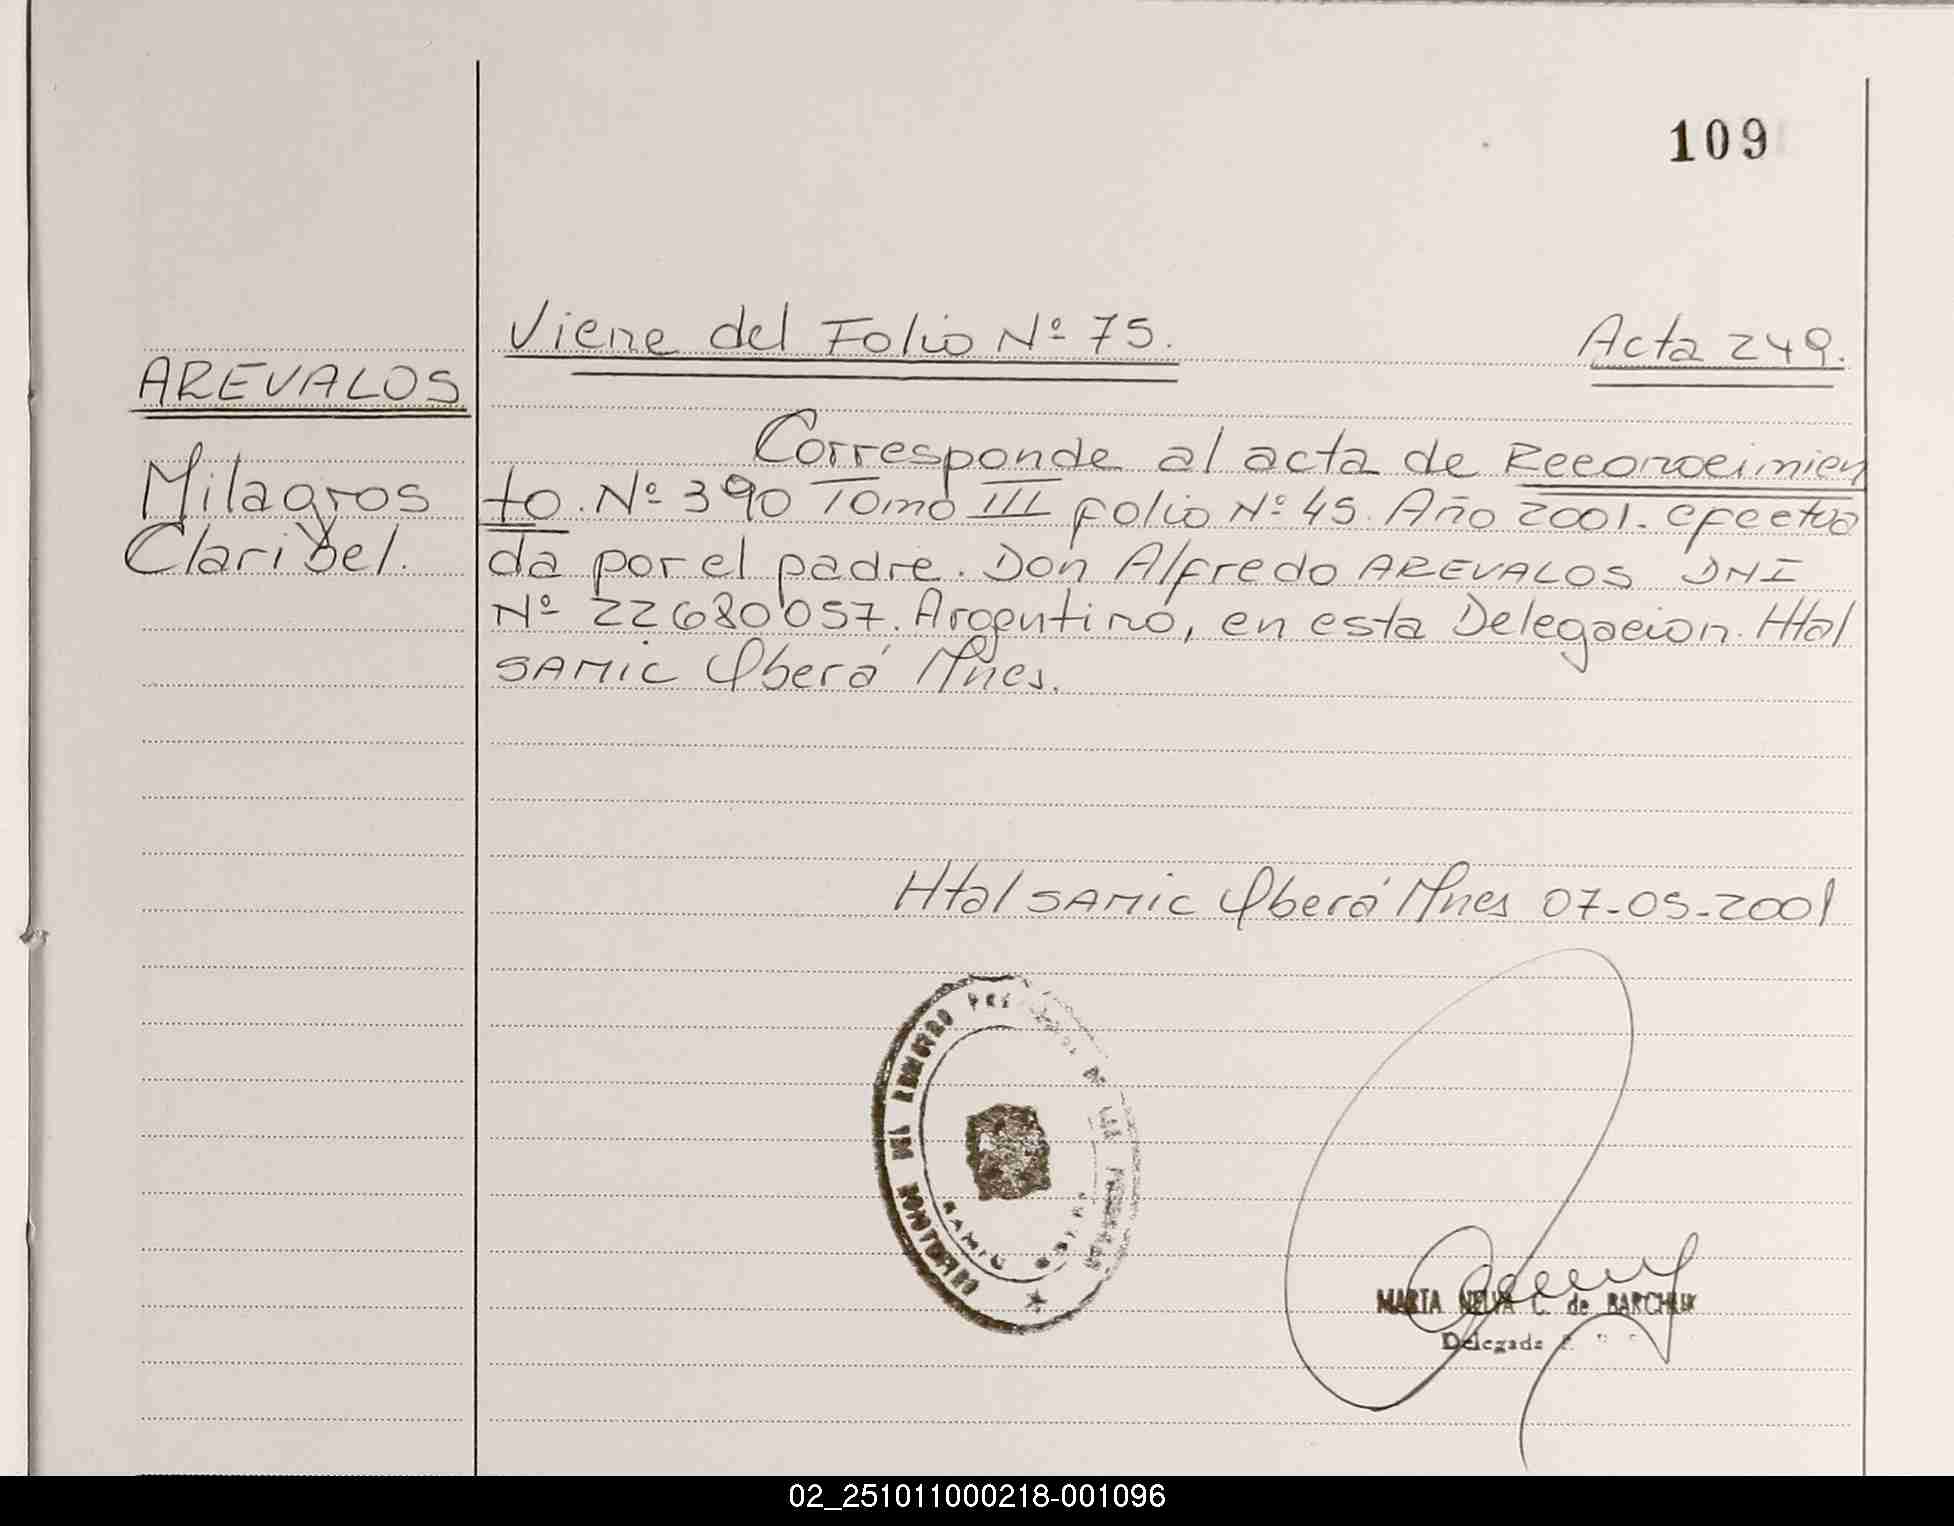 109
Viene del Folio Nº 75.
Acta 249.
AREVALOS
Milagros
Claribel.
Corresponde al acta de Reconocimien
to. Nº 390 Tomo III folio Nº 45. Año 2001. efectua
da por el padre. Don Alfredo AREVALOS DNI
Nº 22680057. Argentino, en esta Delegacion. Htal
SAMIC Oberá Mnes.
Htal SAMIC Oberá Mnes 07-05-2001
DEL REGISTRO
DE LAS PERSONAS
SAMIC OBERA
MARTA NELVA C. de BARCHUK
Delegada
02_251011000218-001096